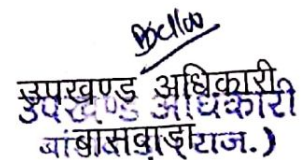 उपखण्ड अधिकारी
उपखण्ड अधिकारी
बांसवाड़ा (राज.)